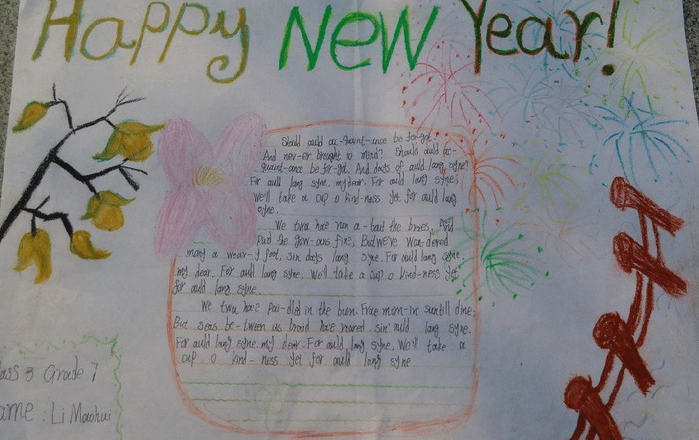 Happy New Year!
Should auld ac-quaint-ance be for-got
And nev-er brought to mind? Should auld ac-
quaint-ance be for-got. And days of auld lang syne?
For auld lang syne, my dear. For auld lang syne.
We'll take a cup o kind-ness yet for auld lang
syne.
We twa have run a-bout the braes, And
pu'd the gow-ans fine, But we've wan-dered
mony a wear-y foot, sin days lang syne. For auld lang syne,
my dear. For auld lang syne. We'll take a cup o kind-ness yet
for auld lang syne.
We twa have pai-dled in the burn. Frae morn-in sun till dine.
But seas be-tween us braid have roared sin' auld lang syne.
For auld lang syne my dear. For auld lang syne. We'll take a
cup o kind-ness yet for auld lang syne
ass 3 Grade 7
ame: Li Maohui